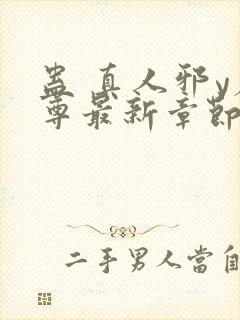 蛊 真人邪y
尊最新章節
二手男人當自